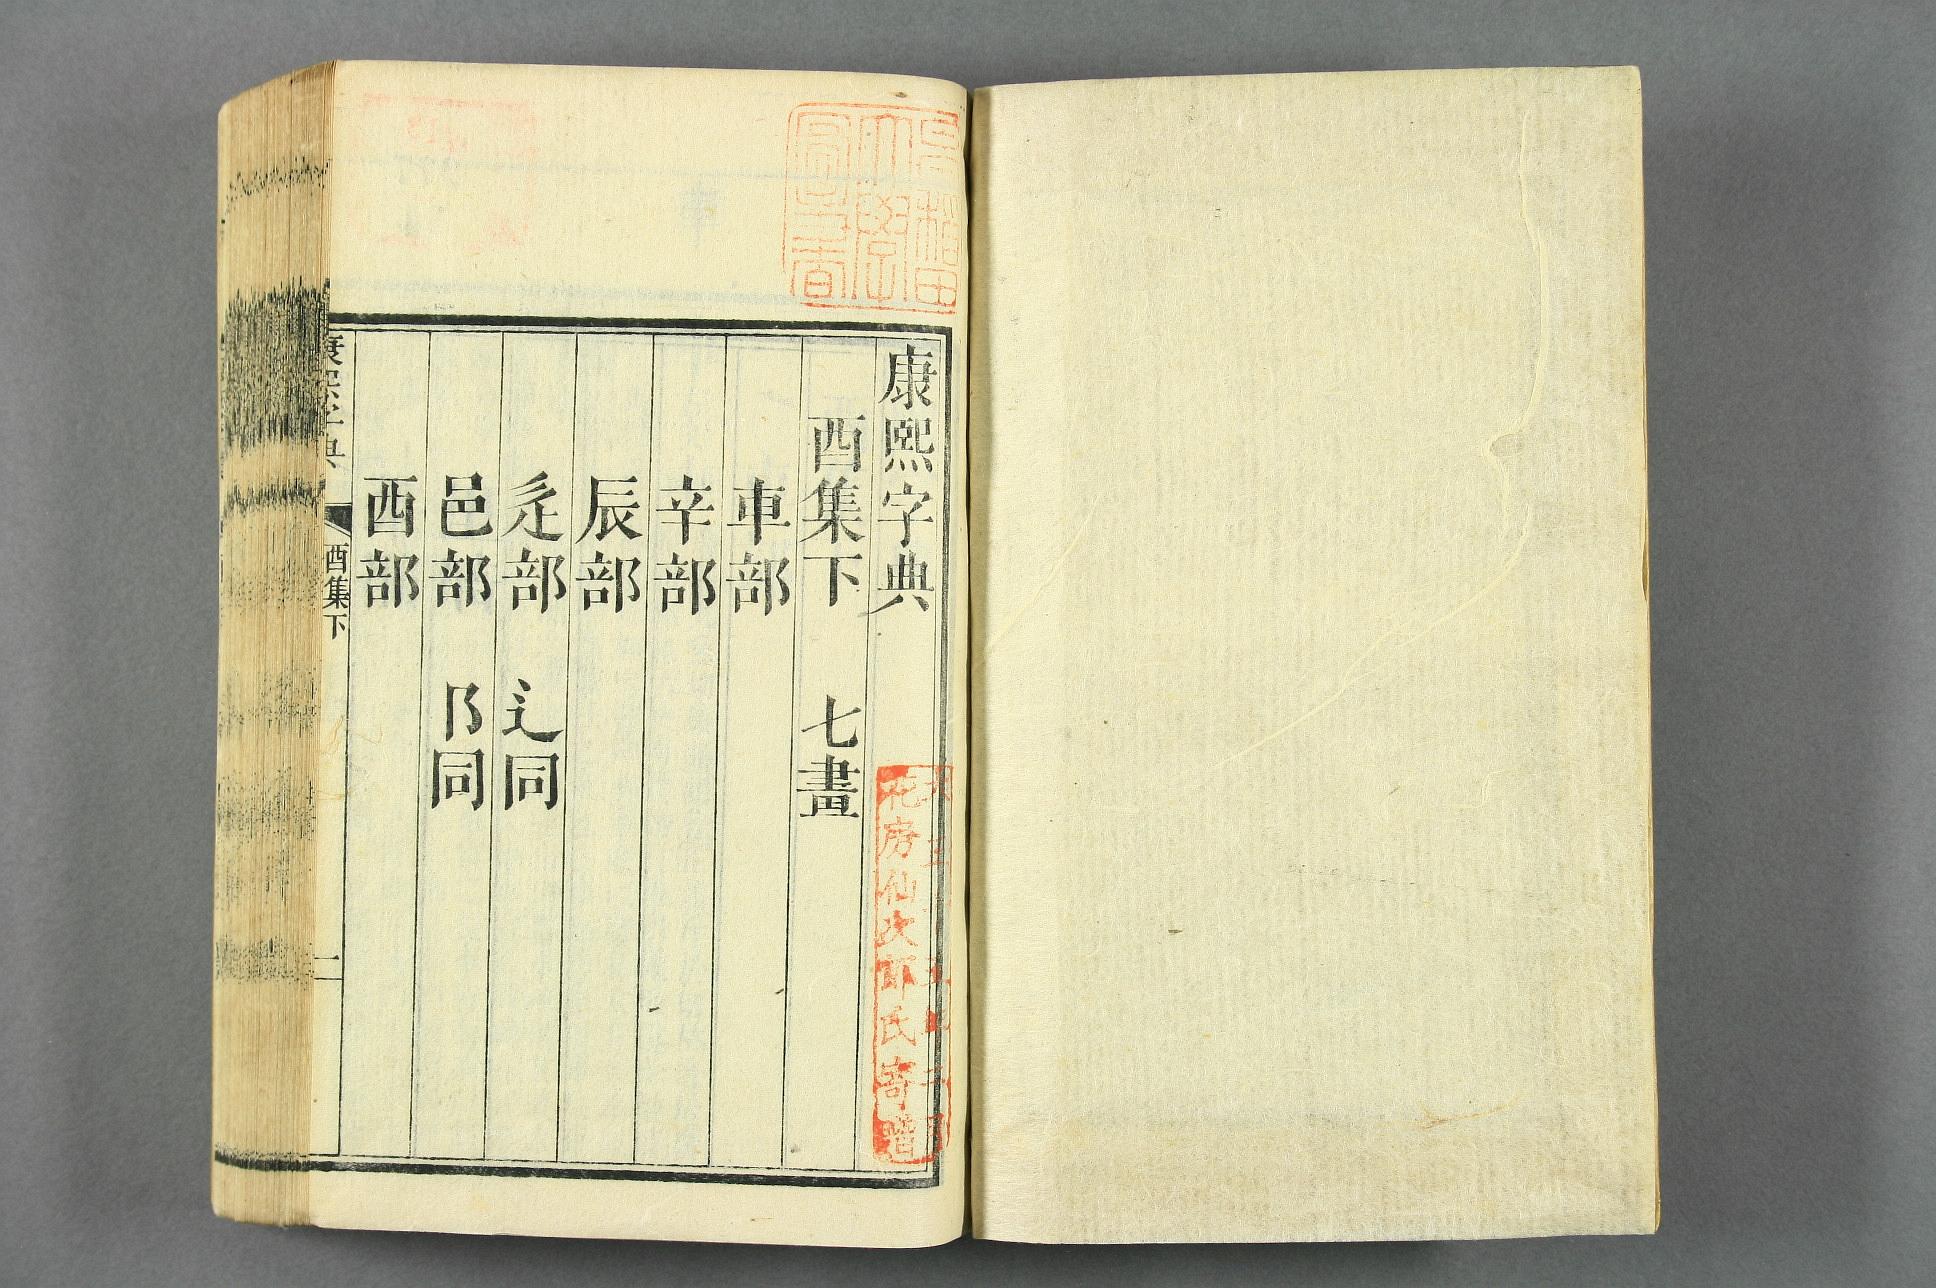 早稲田
大學
圖書
康熙字典
酉集下 七畫
車部
辛部
辰部
辵部 辶同
邑部 阝同
酉部
康熙字典 酉集下 一
花房仙次郎氏寄贈